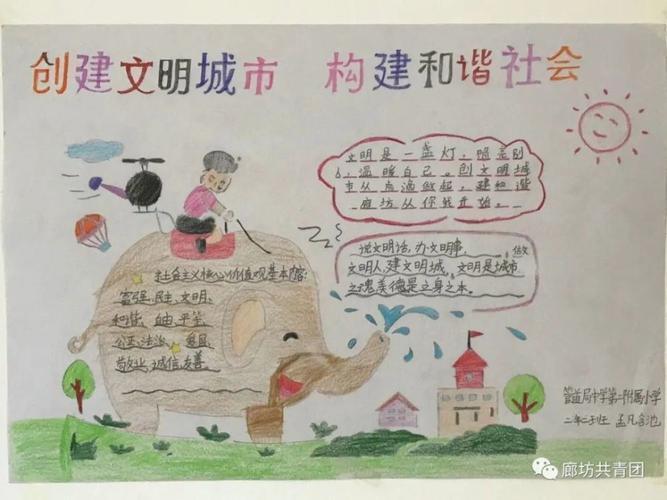 创建文明城市 构建和谐社会
文明是一盏灯,照亮别
人,温暖自己。创文明城
市从点滴做起,建和谐
廊坊从你我开始。
说文明话,办文明事,做
文明人,建文明城,文明是城市
之魂,美德是立身之本。
社会主义核心价值观基本内容:
富强、民主、文明、
和谐、自由、平等、
公正、法治、爱国、
敬业、诚信、友善。
管道局中学第一附属小学
二年二班
廊坊共青团